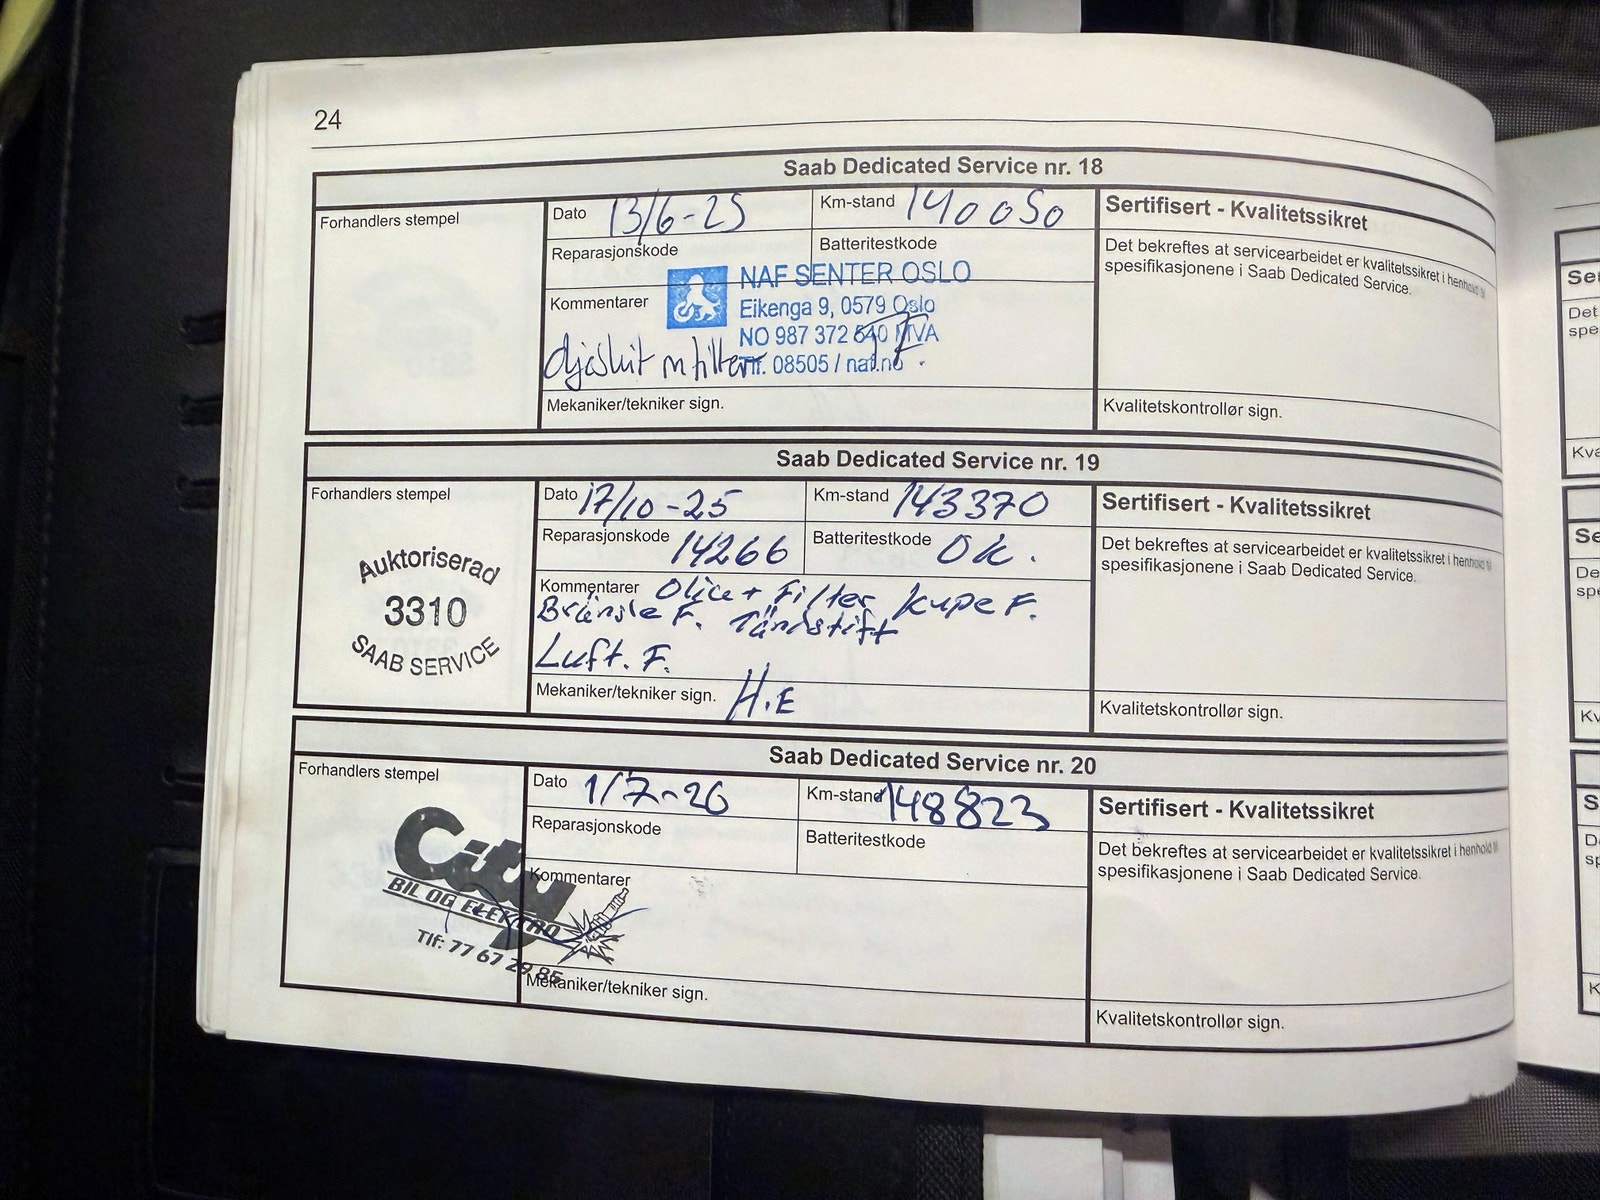 24
Saab Dedicated Service nr. 18
Forhandlers stempel
Dato 13/6-25
Km-stand 140050
Reparasjonskode
Batteritestkode
Kommentarer
NAF SENTER OSLO
Eikenga 9, 0579 Oslo
NO 987 372 640 MVA
Tlf. 08505 / naf.no
oljeskift m filter
Mekaniker/tekniker sign.
Sertifisert - Kvalitetssikret
Det bekreftes at servicearbeidet er kvalitetssikret i henhold til
spesifikasjonene i Saab Dedicated Service.
Kvalitetskontrollør sign.
Saab Dedicated Service nr. 19
Forhandlers stempel
Auktoriserad
3310
SAAB SERVICE
Dato 17/10-25
Km-stand 143370
Reparasjonskode 14266
Batteritestkode Ok.
Kommentarer Olja + Filter Kupe F.
Bränsle F. Tändstift
Luft. F.
Mekaniker/tekniker sign. H.E
Sertifisert - Kvalitetssikret
Det bekreftes at servicearbeidet er kvalitetssikret i henhold til
spesifikasjonene i Saab Dedicated Service.
Kvalitetskontrollør sign.
Saab Dedicated Service nr. 20
Forhandlers stempel
City
BIL OG ELEKTRO
Tlf: 77 67 29 85
Dato 1/7-26
Km-stand 148823
Reparasjonskode
Batteritestkode
Kommentarer
Mekaniker/tekniker sign.
Sertifisert - Kvalitetssikret
Det bekreftes at servicearbeidet er kvalitetssikret i henhold til
spesifikasjonene i Saab Dedicated Service.
Kvalitetskontrollør sign.